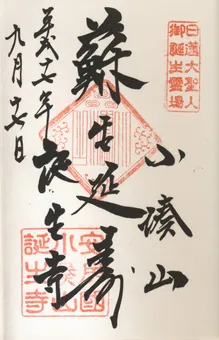 日蓮大聖人
御誕生霊場
小湊山
蘇生延壽
誕生寺
平成十七年
九月十七日
安房国
小湊山
誕生寺